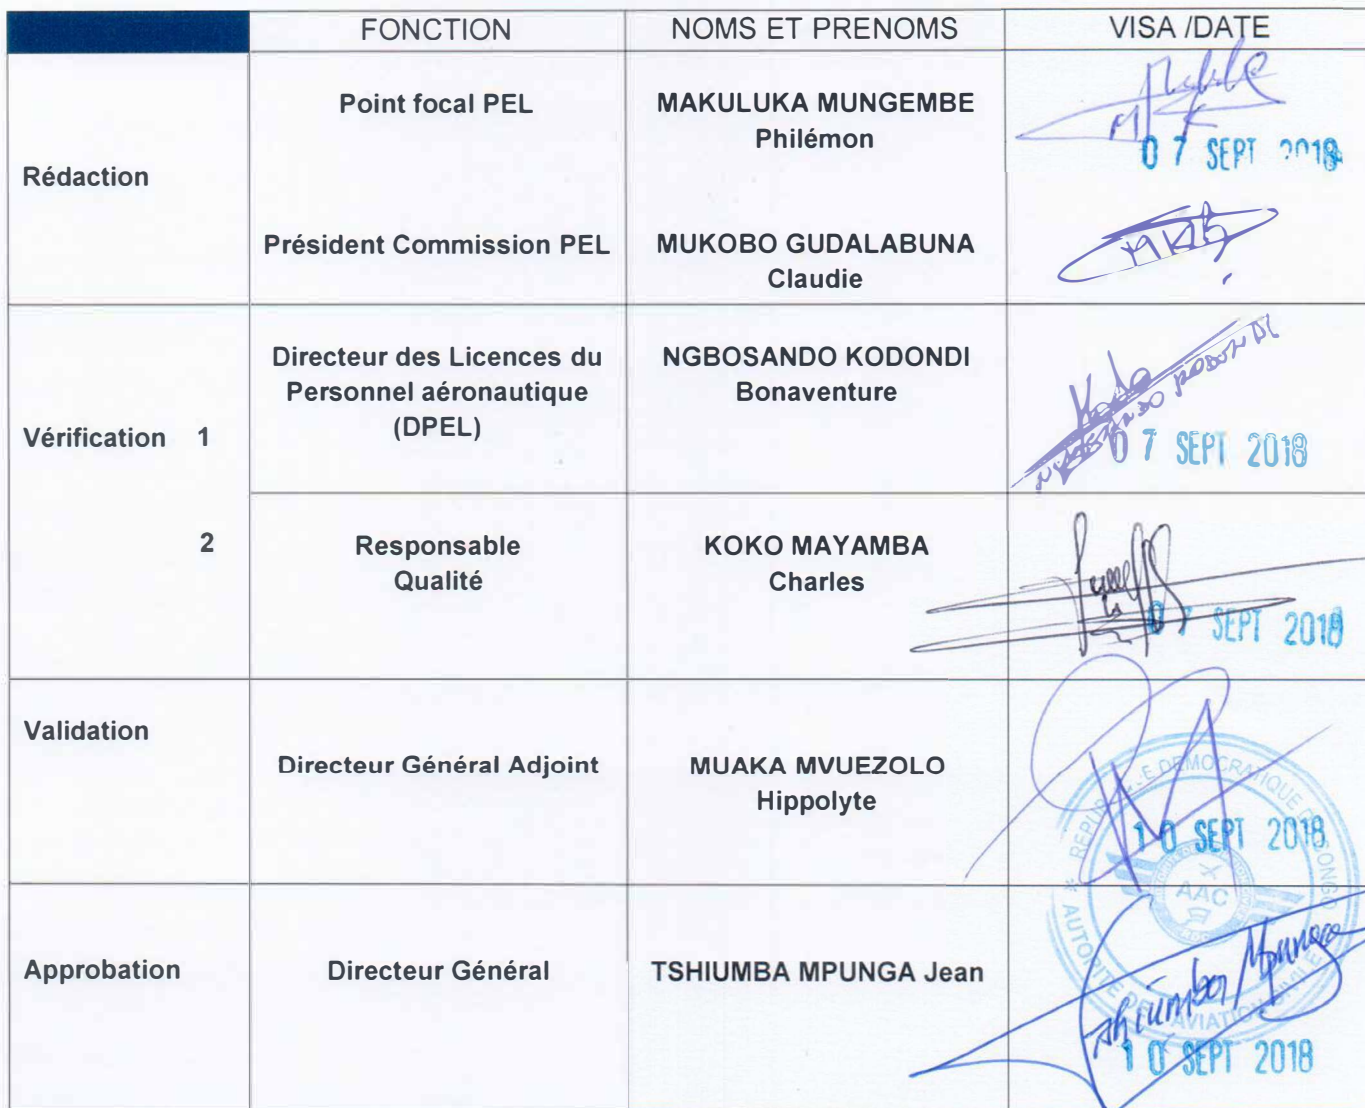 FONCTION
NOMS ET PRENOMS
VISA /DATE
Rédaction
Point focal PEL
MAKULUKA MUNGEMBE
Philémon
07 SEPT 2018
Président Commission PEL
MUKOBO GUDALABUNA
Claudie
Vérification 1
Directeur des Licences du
Personnel aéronautique
(DPEL)
NGBOSANDO KODONDI
Bonaventure
NGBOSANDO KODONDI
07 SEPT 2018
2
Responsable
Qualité
KOKO MAYAMBA
Charles
07 SEPT 2018
Validation
Directeur Général Adjoint
MUAKA MVUEZOLO
Hippolyte
10 SEPT 2018
REPUBLIQUE DEMOCRATIQUE DU CONGO
AAC
AUTORITE DE L'AVIATION CIVILE
Approbation
Directeur Général
TSHIUMBA MPUNGA Jean
Tshiumba Mpunga
10 SEPT 2018